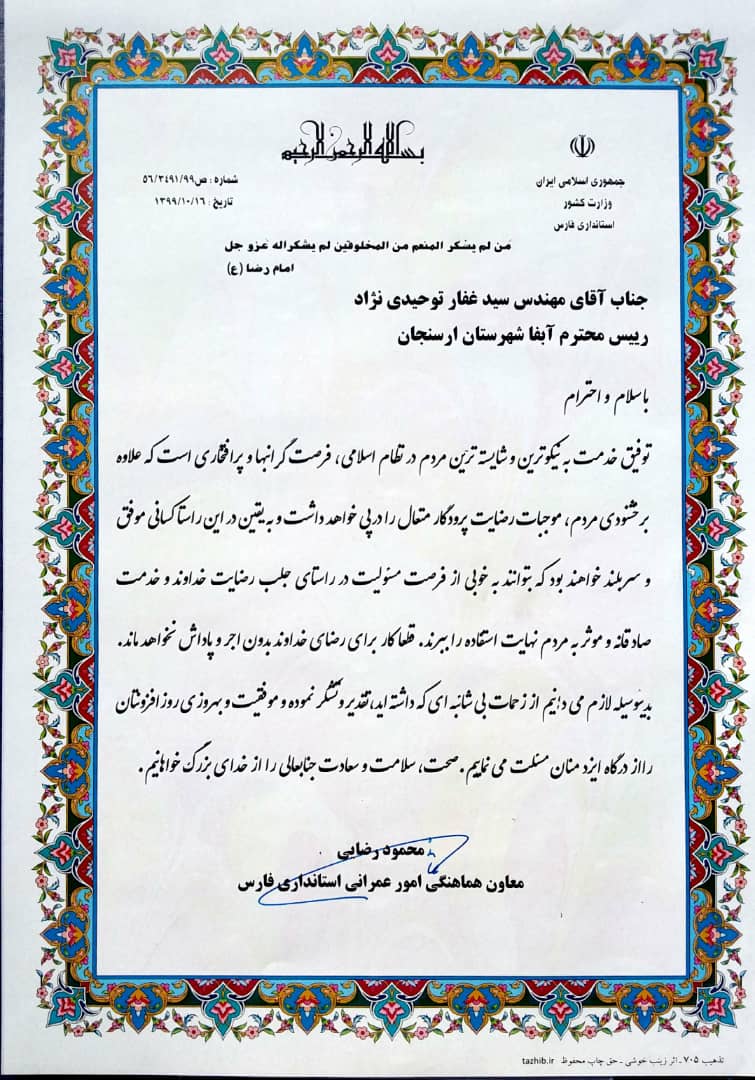 بسم الله الرحمن الرحیم
جمهوری اسلامی ایران
وزارت کشور
استانداری فارس
شماره : ص۵۶/۳۴۹۱/۹۹
تاریخ : ۱۳۹۹/۱۰/۱۶
من لم یشکر المنعم من المخلوقین لم یشکراله عزو جل
امام رضا (ع)
جناب آقای مهندس سید غفار توحیدی نژاد
رییس محترم آبفا شهرستان ارسنجان
باسلام و احترام
توفیق خدمت به نیکوترین و شایسته ترین مردم در نظام اسلامی، فرصت گرانبها و پرافتخاری است که علاوه
بر خشنودی مردم، موجبات رضایت پرودگار متعال را در پی خواهد داشت و به یقین در این راستا کسانی موفق
و سربلند خواهند بود که بتوانند به خوبی از فرصت مسئولیت در راستای جلب رضایت خداوند و خدمت
صادقانه و موثر به مردم نهایت استفاده را ببرند. قطعا کار برای رضای خداوند بدون اجر و پاداش نخواهد ماند.
بدینوسیله لازم می دانیم از زحمات بی شائبه ای که داشته اید، تقدیر و تشکر نموده و موفقیت و بهروزی روز افزونتان
را از درگاه ایزد منان مسئلت می نماییم. صحت، سلامت و سعادت جنابعالی را از خدای بزرگ خواهانیم.
محمود رضایی
معاون هماهنگی امور عمرانی استانداری فارس
تذهیب ۷۰۵ ـ اثر زینب خوشی ـ حق چاپ محفوظ tazhib.ir